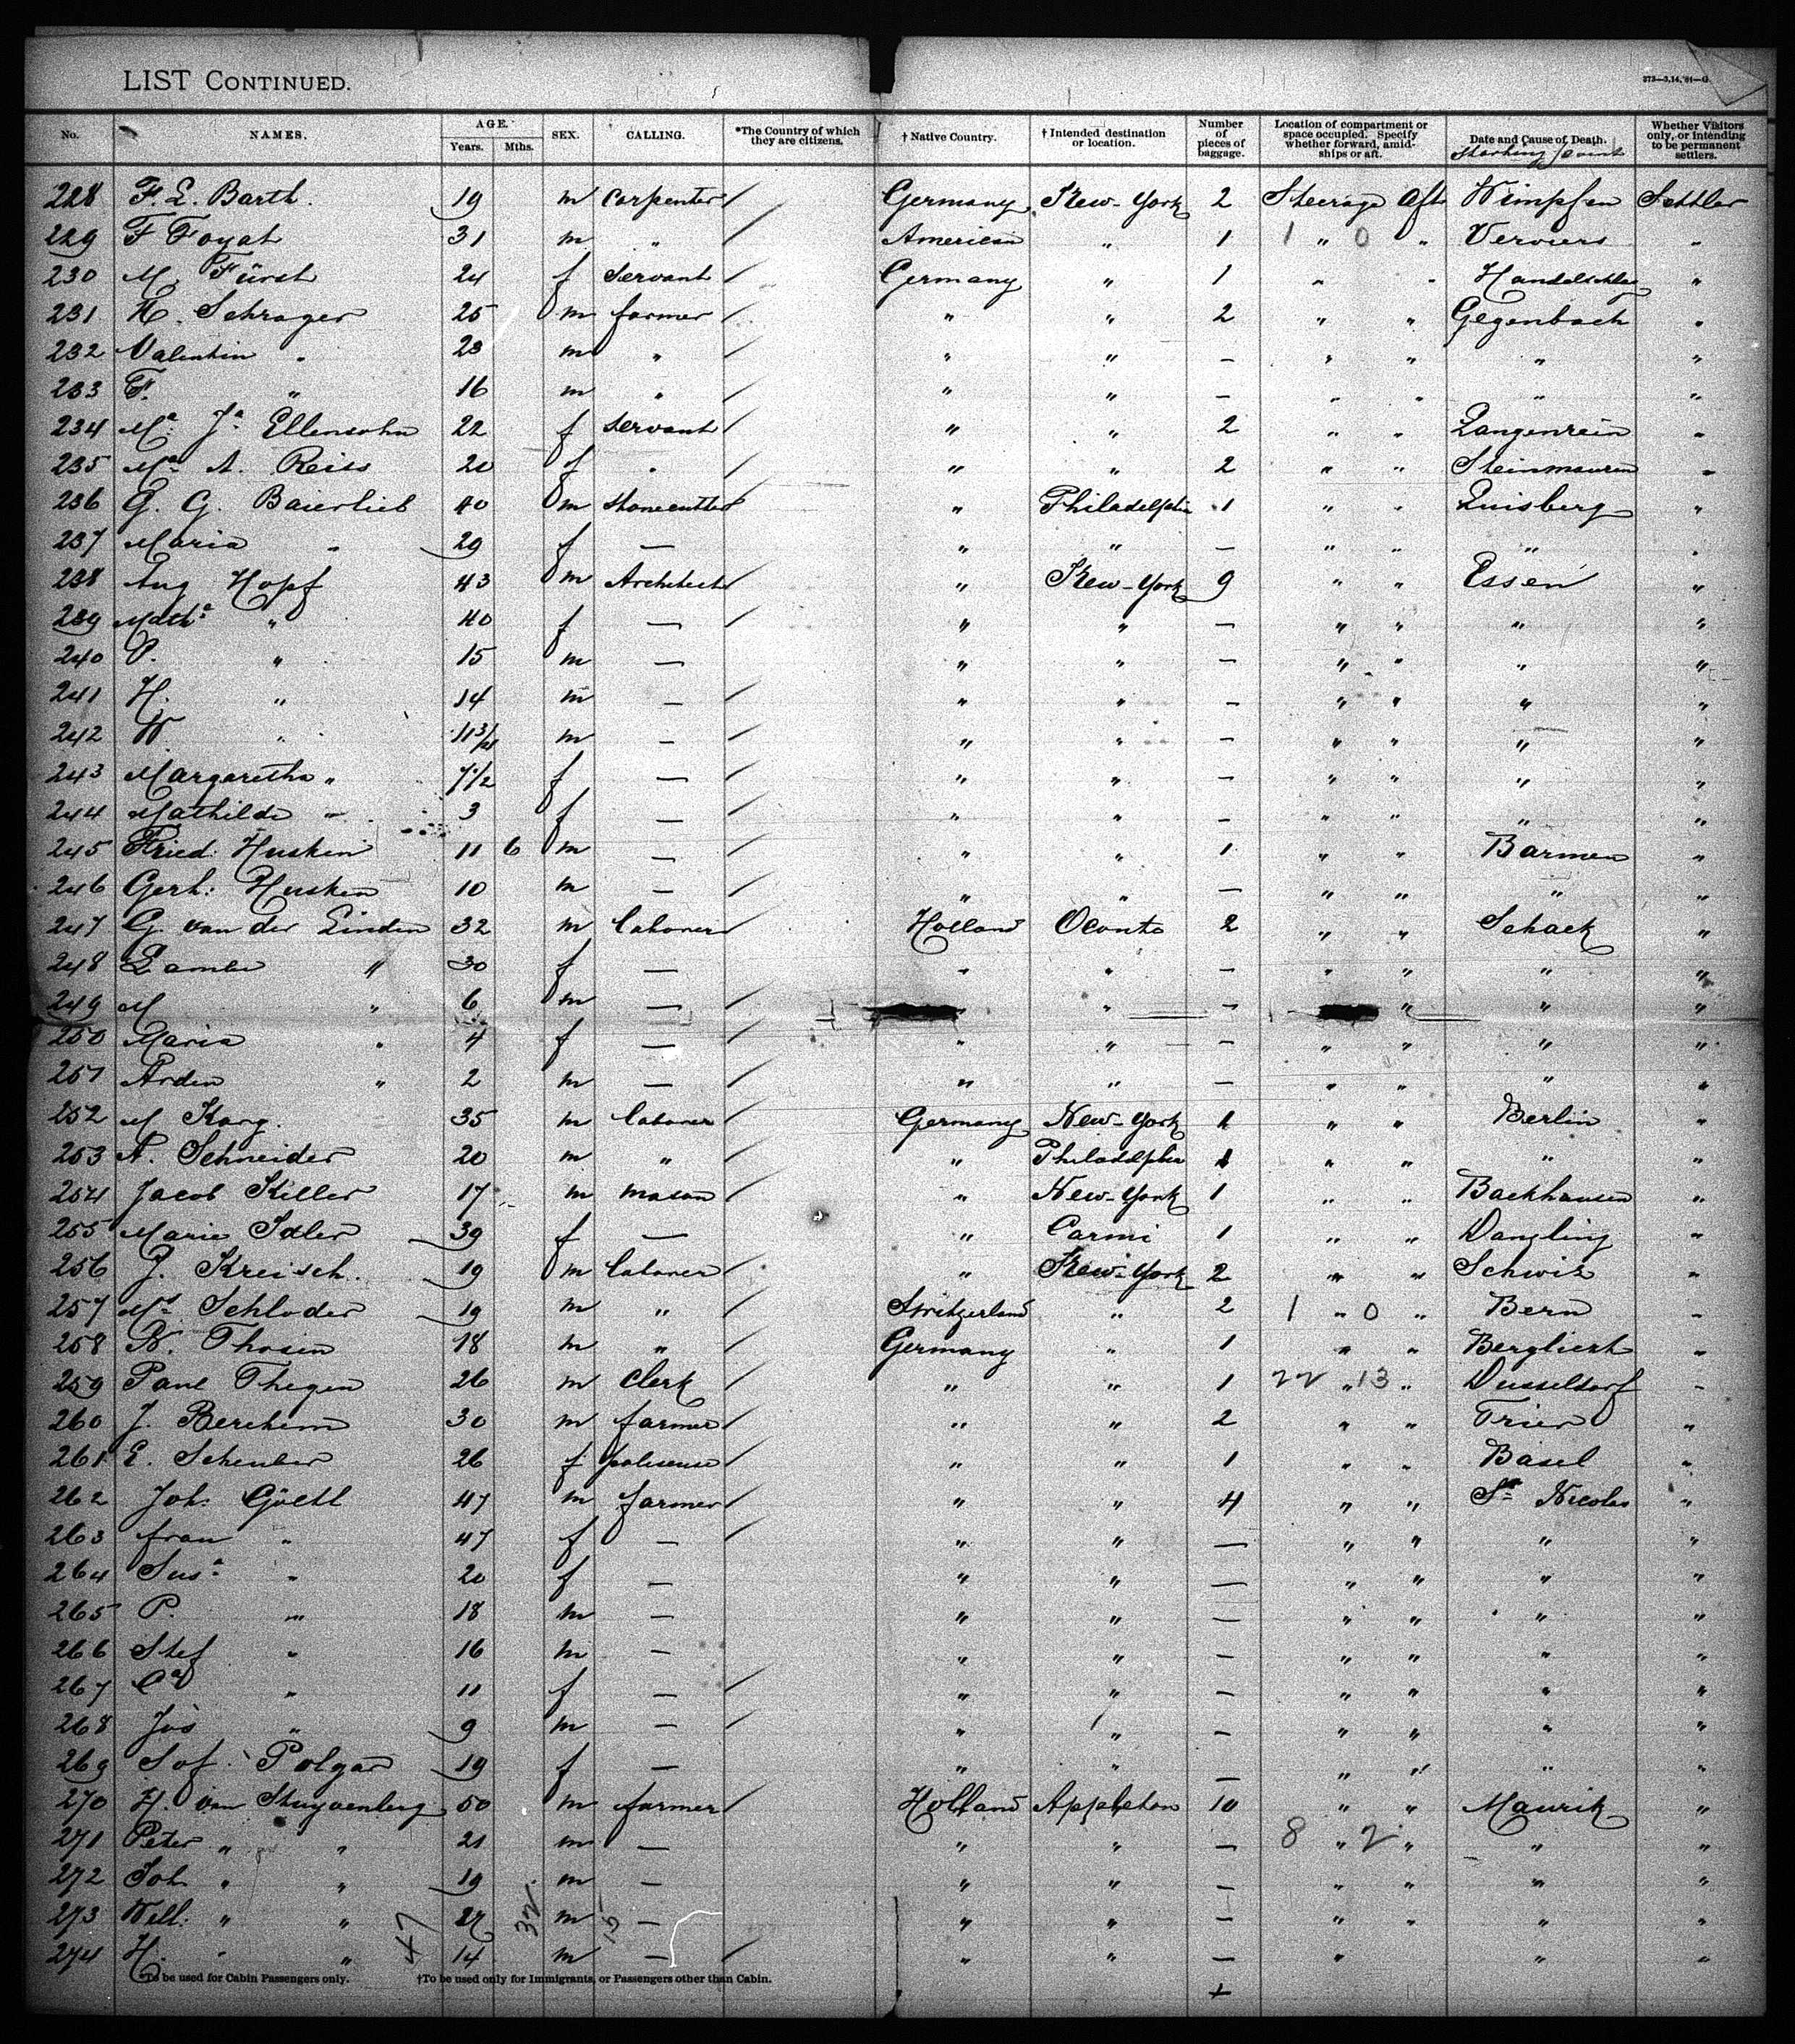 LIST CONTINUED.
273—3,14,'91—G
No. NAMES. AGE. Years. Mths. SEX. CALLING. *The Country of which they are citizens. † Native Country. † Intended destination or location. Number of pieces of baggage. Location of compartment or space occupied. Specify whether forward, amidships or aft. Date and Cause of Death. Whether Visitors only, or intending to be permanent settlers.
Starting point
228 F. E. Barth. 19 m carpenter / Germany New-York 2 Steerage Aft Wimpfen Settler
229 F Foyat 31 m " / American " 1 1 " 0 " Verviers "
230 M. Fürst 24 f Servant / Germany " 1 " " "
231 H. Schrager 25 m farmer / " " 2 " " Gegenbach "
232 Valentin " 23 m " / " " — " " " "
233 F. " 16 m " / " " — " " " "
234 Ma Ja Ellensohn 22 f servant / " " 2 " " Langenrein "
235 Ma A. Reiss 20 f " / " " 2 " " Steinmauren "
236 G. G. Baierlieb 40 m stonecutter / " Philadelphia 1 " " Luisberg "
237 Maria " 29 f — / " " — " " " "
238 Aug Hopf 43 m Architect / " New-York 9 " " Essen "
239 Matha " 40 f — / " " — " " " "
240 P. " 15 m — / " " — " " " "
241 H. " 14 m — / " " — " " " "
242 W " 11 3/4 m — / " " — " " " "
243 Margaretha " 7 1/2 f — / " " — " " " "
244 Mathilde " 3 f — / " " — " " " "
245 Fried. Husken 11 6 m — / " " 1 " " Barmen "
246 Gerh: Husken 10 m — / " " — " " " "
247 G. van der Linden 32 m laborer / Holland Oconto 2 " " Schack "
248 " 30 f — / " " — " " " "
249 M " 6 m — / " " — " " "
250 Maria " 4 f — / " " — " " " "
251 Arden " 2 m — / " " — " " " "
252 M Karg. 35 m laborer / Germany New-York 1 " " Berlin "
253 A. Schneider 20 m " / " Philadelphia 1 " " " "
254 Jacob Killer 17 m mason / " New-York 1 " " Backhausen "
255 Marie Idler 39 f — / " Carmi 1 " " Dangling "
256 J. Kreisch. 19 m laborer / " New-York 2 " " Schwiz "
257 Ms Schloder 19 m " / Switzerland " 2 1 " 0 " Bern "
258 N. Thosin 18 m " / Germany " 1 " " Berglicht "
259 Paul Thegen 26 m Clerk / " " 1 22 " 13 " Dusseldorf "
260 J. Berchem 30 m farmer / " " 2 " " Trier "
261 E. Scheuber 26 f poliseuse / " " 1 " " Basel "
262 Joh. Göttl 47 m farmer / " " 4 " " St Nicolas "
263 frau " 47 f — / " " — " " " "
264 Susa " 20 f — " " — " " " "
265 P. " 18 m — " " — " " " "
266 Stef " 16 m — " " — " " " "
267 Ca " 11 f — / " " — " " " "
268 Jos " 9 m — / " " — " " " "
269 Sof. Polgar 19 f — " " — " " " "
270 H. van Stuyvenberg 50 m farmer / Holland Appleton 10 " " Maurik "
271 Peter " " 21 m — " " — 8 " 2 " " "
272 Joh. " " 19 m — " " — " " " "
273 Will: " " 27 m — " " — " " " "
274 H. " " 14 m — / " " — " " "
47 32 15
*To be used for Cabin Passengers only. †To be used only for Immigrants, or Passengers other than Cabin.